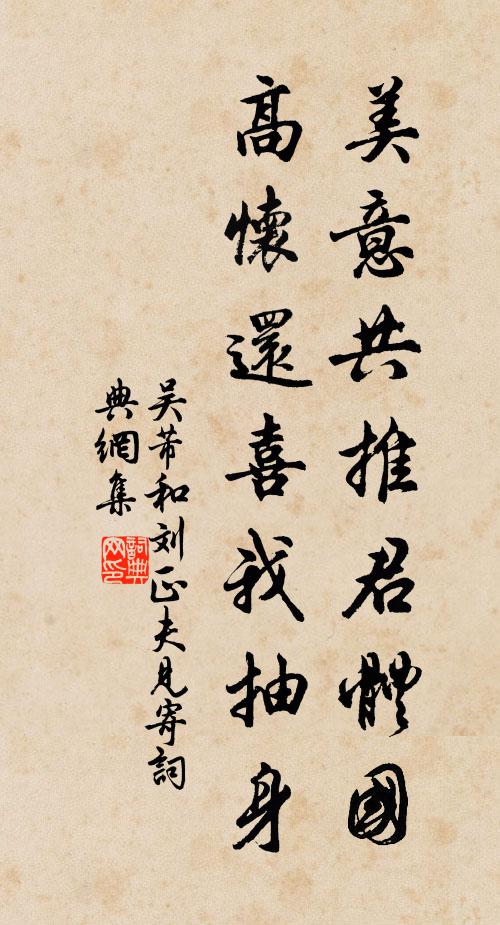 美意共推君體國
高懷還喜我抽身
吴芾和刘正夫見寄詞
典網集
詞典网印